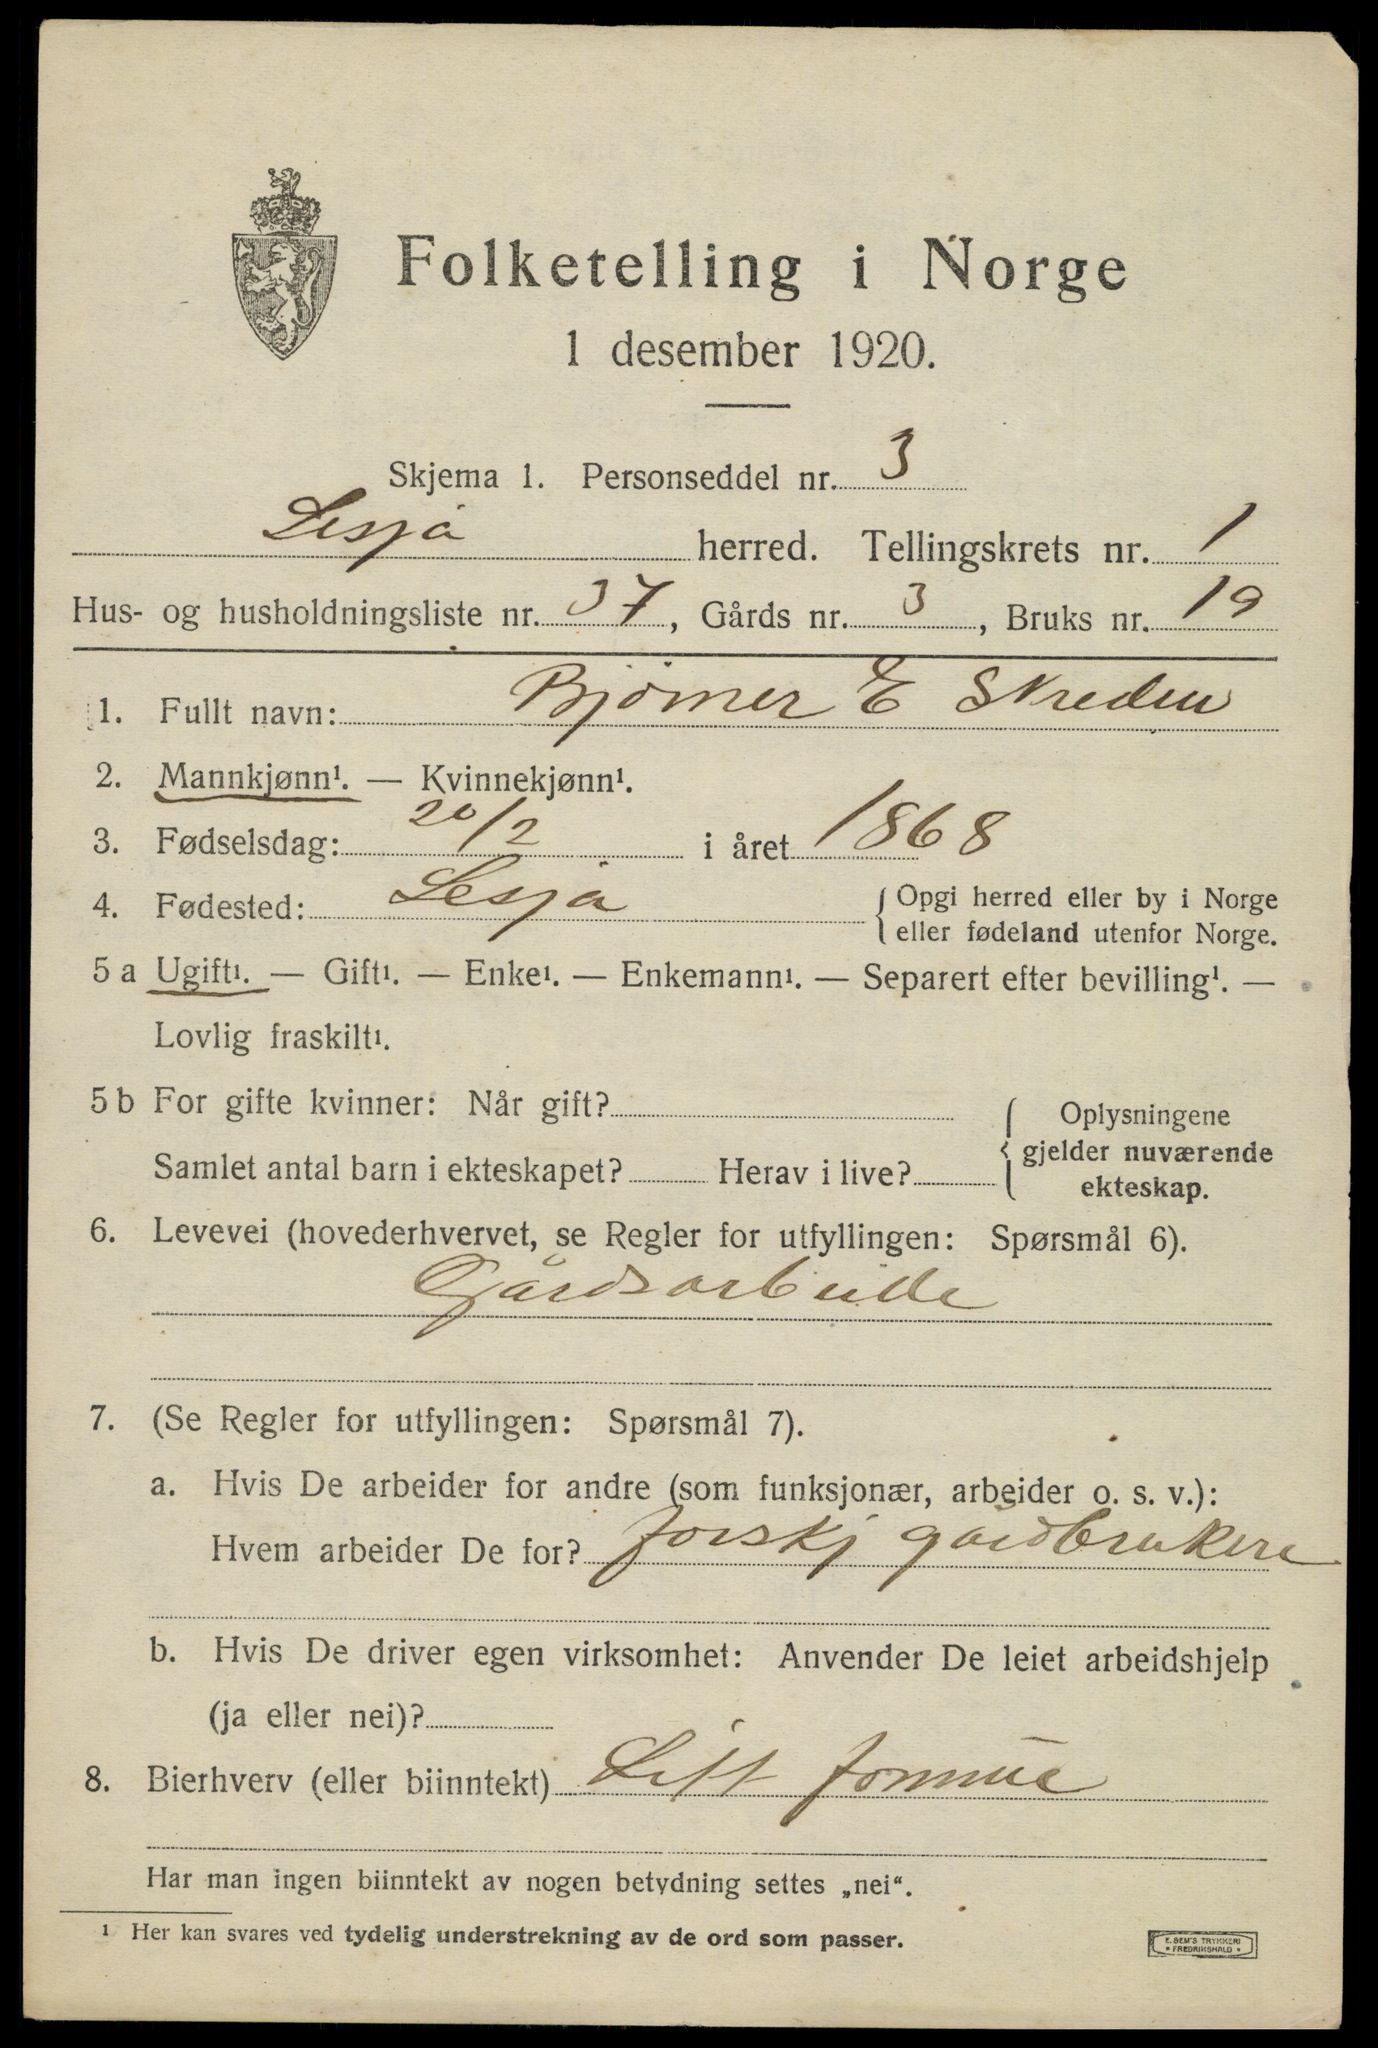 Folketelling i Norge
1 desember 1920.
Skjema 1. Personseddel nr. 3
Lesja herred. Tellingskrets nr. 1
Hus- og husholdningsliste nr. 37, Gårds nr. 3, Bruks nr. 19
1. Fullt navn: Bjørner E Skreden
2. Mannkjønn¹. — Kvinnekjønn¹.
3. Fødselsdag: 20/2 i året 1868
4. Fødested: Lesja { Opgi herred eller by i Norge
eller fødeland utenfor Norge.
5 a Ugift¹. — Gift¹. — Enke¹. — Enkemann¹. — Separert efter bevilling¹. —
Lovlig fraskilt¹.
5 b For gifte kvinner: Når gift? { Oplysningene
gjelder nuværende
Samlet antal barn i ekteskapet? Herav i live? ekteskap.
6. Levevei (hovederhvervet, se Regler for utfyllingen: Spørsmål 6).
Gårdsarbeide
7. (Se Regler for utfyllingen: Spørsmål 7).
a. Hvis De arbeider for andre (som funksjonær, arbeider o. s. v.):
Hvem arbeider De for? forskj gårdbrukere
b. Hvis De driver egen virksomhet: Anvender De leiet arbeidshjelp
(ja eller nei)?
8. Bierhverv (eller biinntekt)
Har man ingen biinntekt av nogen betydning settes „nei“.
¹ Her kan svares ved tydelig understrekning av de ord som passer.
E. SEM'S TRYKKERI
• FREDRIKSHALD •